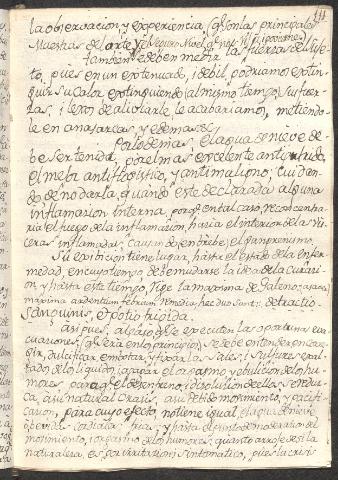 111
la observacion y experiencia, q̃ son las principales
Muestras del arte,
tambien se deben medir las fuerzas del suge-
to, pues en un extenuado, i debil, podriamos extin-
guir su calor, extinguiendo al mismo tiempo, sus fuer-
zas, i lexos de aliviarle le acabariamos, metiendo-
le en anasarcas, y edemas &c.
Por lo demas, el agua de nieve de-
be ser tenida, por el mas excelente antiputrido,
el mejor antiflogistico, y antimaligno; cuidan-
do de no darla, quando este declarada alguna
inflamacion interna, porq̃ en tal caso, reconcentra-
ria el fuego de la inflamacion, hacia el interior de las vis-
ceras inflamadas; causandoen brebe, el gangrenismo.
Su exibicion tiene lugar, hasta el estado de la enfer-
medad, en cuyo tiempo debe mudarse la idea de la curaci-
on, y hasta este tiempo, rige la maxima de Galeno:
maxima ardentium febrium remedia, hec duo sunt: detractio
sanguinis, et potio frigida.
Asi pues, al paso q̃ se executen las oportunas eva-
cuaciones, (q̃ sera en los principios) se debe entender en
dulcificar, embotar, y fixar las sales, i sulfures exal-
tados de los liquidos; apagar el orgasmo y ebulicion de los hu-
mores, para q̃ el desenfreno, i disolucion de ellos, se reduz-
ca, a su natural crasis, a su devido movimiento, y pacifi-
cacion, para cuyo efecto, no tiene igual, el agua de nieve
o bevidas cordiales frias; y hasta el de moderacion del
movimiento, i orgasmo de los humores, quanto arroje de si la
naturaleza, es por irritacion, i sintomatico, pues la crisis